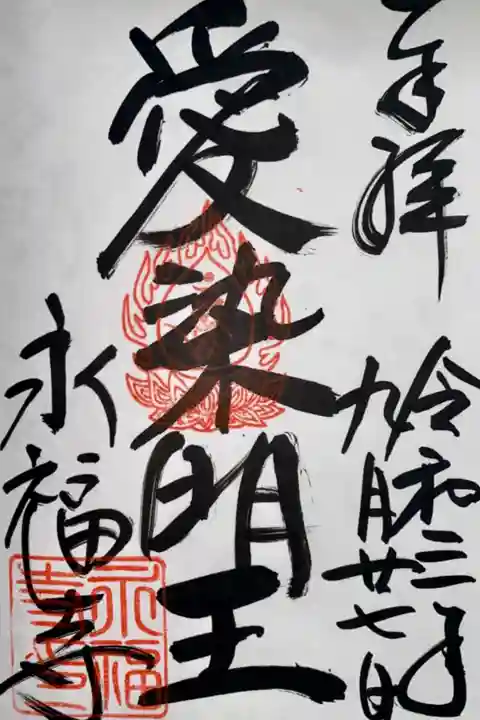 奉拝
令和三年
九月廿七日
愛染明王
永福寺
永福寺印